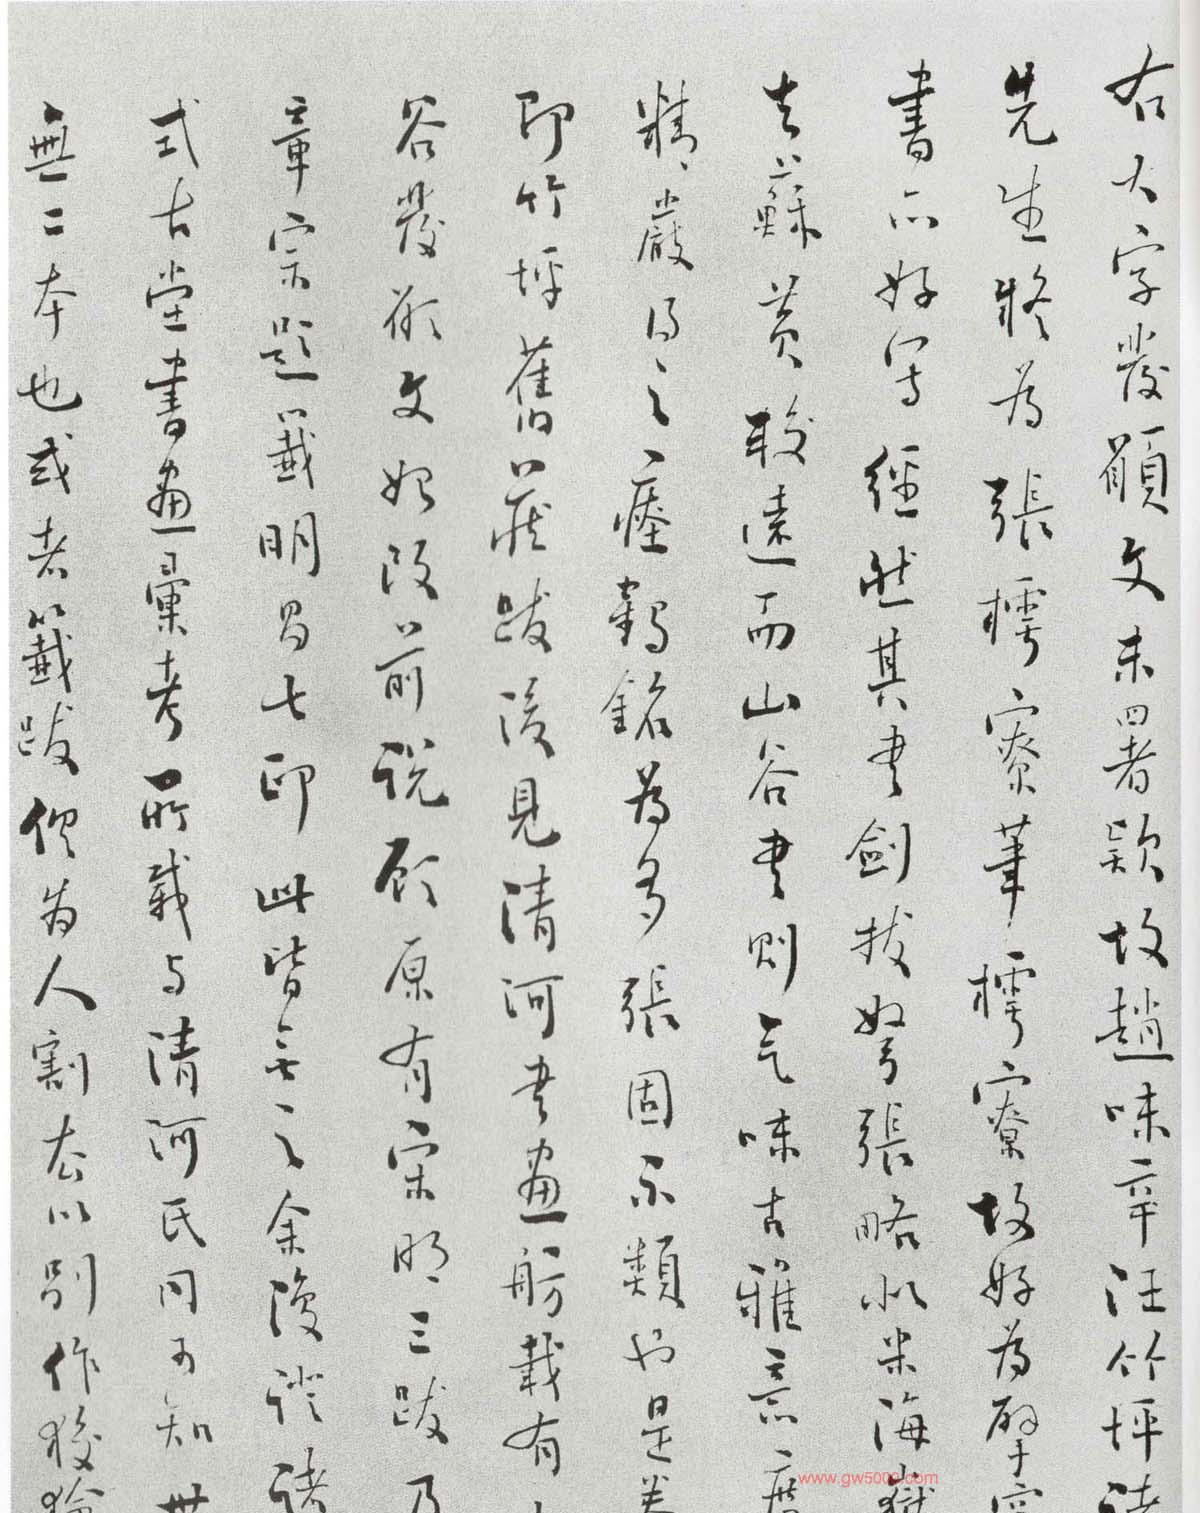 右大字發願文未署款故趙味辛汪竹坪諸
先生疑為張樗寮筆樗寮故好為擘窠
書亦好寫經然其書劍拔弩張略似米海嶽
去蘇黃較遠而山谷書則氣味古雅意度
精嚴得之瘞鶴銘為多張固不類也是卷
即竹坪舊藏跋後見清河書畫舫載有
谷發願文始改前說顧原有宋明三跋乃
章宗題籤明昌七印此皆無之余復證諸
式古堂書畫彙考所載与清河氏同可知世
無二本也或者籤跋俱為人割去以別作狡獪
www.gw5000.com